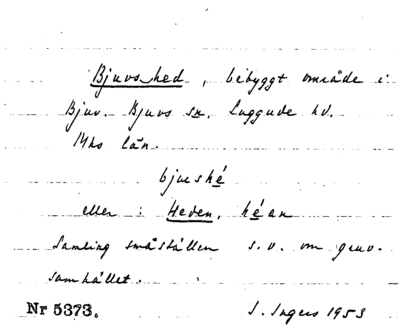 Bjuvs hed, bebyggt område i
Bjuv. Bjuvs sn. Luggude hd.
Mhs län.
bjushé
eller: Heden, héan
Samling småställen s.v. om gruv-
samhället.
Nr 5373. I. Ingers 1953